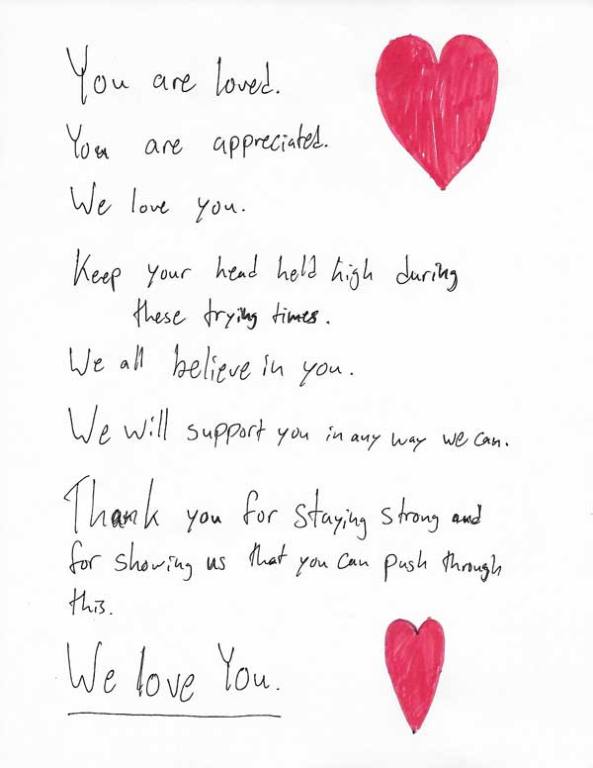 You are loved.
You are appreciated.
We love you.
Keep your head held high during
these trying times.
We all believe in you.
We will support you in any way we can.
Thank you for staying strong and
for showing us that you can push through
this.
We love You.